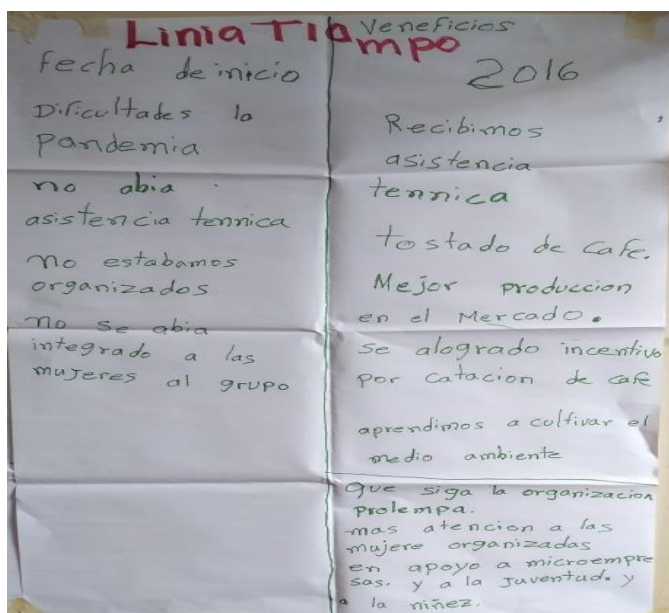 Linia Tiampo
fecha de inicio
Dificultades la
pandemia
no abia
asistencia tennica
no estabamos
organizados
no se abia
integrado a las
mujeres al grupo
Veneficios
2016
Recibimos
asistencia
tennica
tostado de cafe.
Mejor produccion
en el Mercado.
se alogrado incentivo
por catacion de cafe
aprendimos a cultivar el
medio ambiente
que siga la organizacion
prolempa.
mas atencion a las
mujere organizadas
en apoyo a microempre
sas. y a la juventud. y
a la niñez.